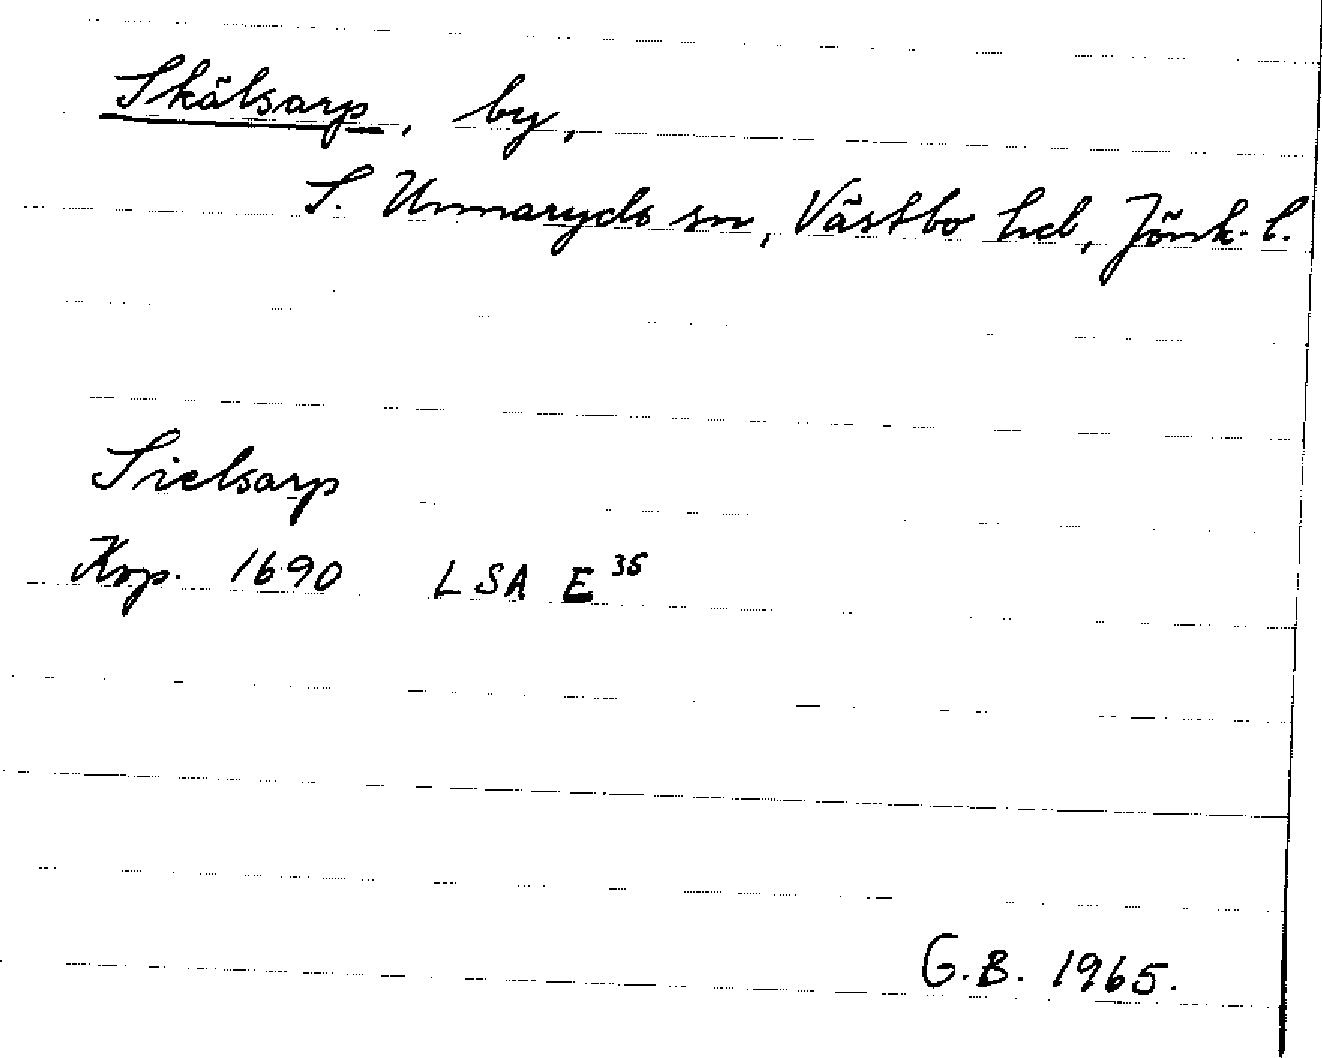 Skälsarp, by,
S. Unnaryds sn, Västbo hd, Jönk. l.
Sielsarp
Kop. 1690 LSA E 36
G.B. 1965.